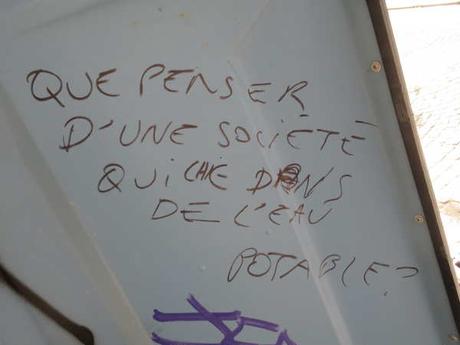 QUE PENSER
D'UNE SOCIÉTÉ
QUI CHIE DANS
DE L'EAU
POTABLE?